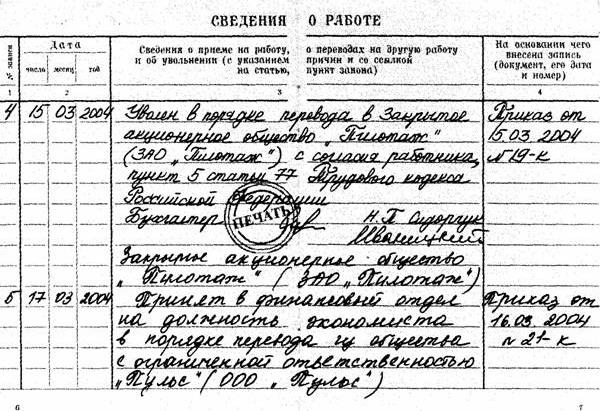 СВЕДЕНИЯ О РАБОТЕ
№ записи
Дата
Сведения о приеме на работу, о переводах на другую работу
и об увольнении (с указанием причин и со ссылкой
на статью, пункт закона)
На основании чего
внесена запись
(документ, его дата
и номер)
число месяц год
1 2 3 4
4 15 03 2004 Уволен в порядке перевода в Закрытое Приказ от
акционерное общество „Пилотаж“ 15.03.2004
(ЗАО „Пилотаж“) с согласия работника, N 19-к
пункт 5 статьи 77 Трудового кодекса
Российской Федерации
Бухгалтер Н.П. Сидорчук
ПЕЧАТЬ
Закрытое акционерное общество
„Пилотаж“ (ЗАО „Пилотаж“)
5 17 03 2004 Принят в финансовый отдел Приказ от
на должность экономиста 16.03.2004
в порядке перевода из общества N 21-к
с ограниченной ответственностью
„Пульс“ (ООО „Пульс“)
6 7